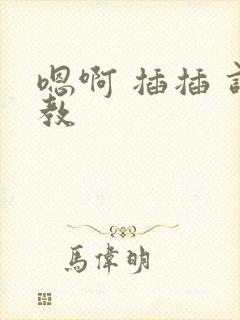 嗯啊 插插
教
馬偉明